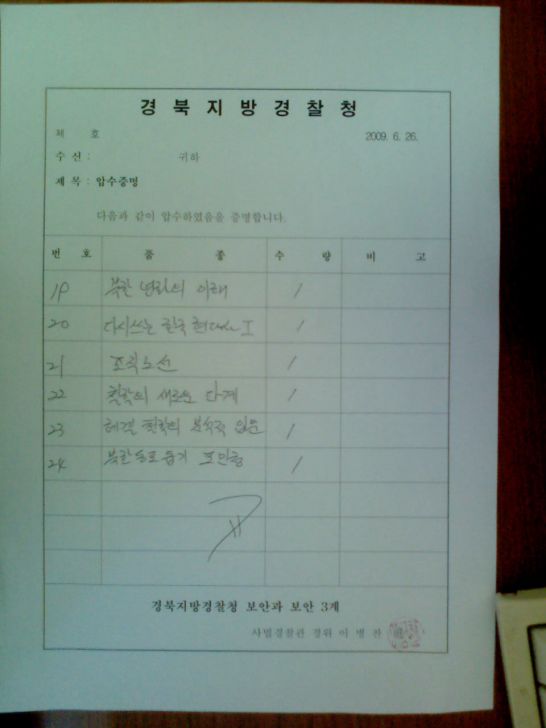 경북지방경찰청
제 호
2009. 6. 26.
수 신 : 귀하
제 목 : 압수증명
다음과 같이 압수하였음을 증명합니다.
번 호 품 종 수 량 비 고
19 북한 변화의 이해 1
20 다시쓰는 한국현대사 I 1
21 조직노선 1
22 철학의 새로운 단계 1
23 헤겔 철학의 분석적 입문 1
24 북한동포돕기 1
경북지방경찰청 보안과 보안 3계
사법경찰관 경위 이 병 찬